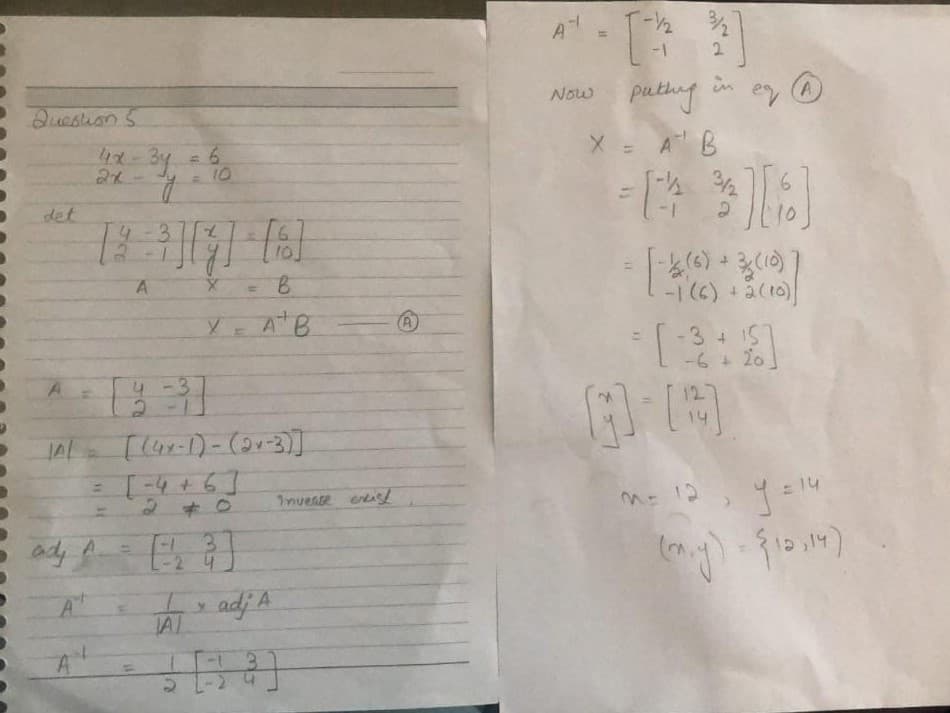 Question 5
4x - 3y = 6
2x - y = 10
let
[4 -3; 2 -1] [x; y] = [6; 10]
A X = B
X = A⁻¹ B —— Ⓐ
A = [4 -3; 2 -1]
|A| = [(4x-1) - (2x-3)]
= [-4 + 6]
= 2 ≠ 0 inverse exist.
adj A = [-1 3; -2 4]
A⁻¹ = 1/|A| x adj A
A⁻¹ = 1/2 [-1 3; -2 4]
A⁻¹ = [-1/2 3/2; -1 2]
Now putting in eq Ⓐ
X = A⁻¹ B
= [-1/2 3/2; -1 2] [6; 10]
= [-1/2(6) + 3/2(10); -1(6) + 2(10)]
= [-3 + 15; -6 + 20]
[x; y] = [12; 14]
x = 12 , y = 14
(x,y) = {12,14)